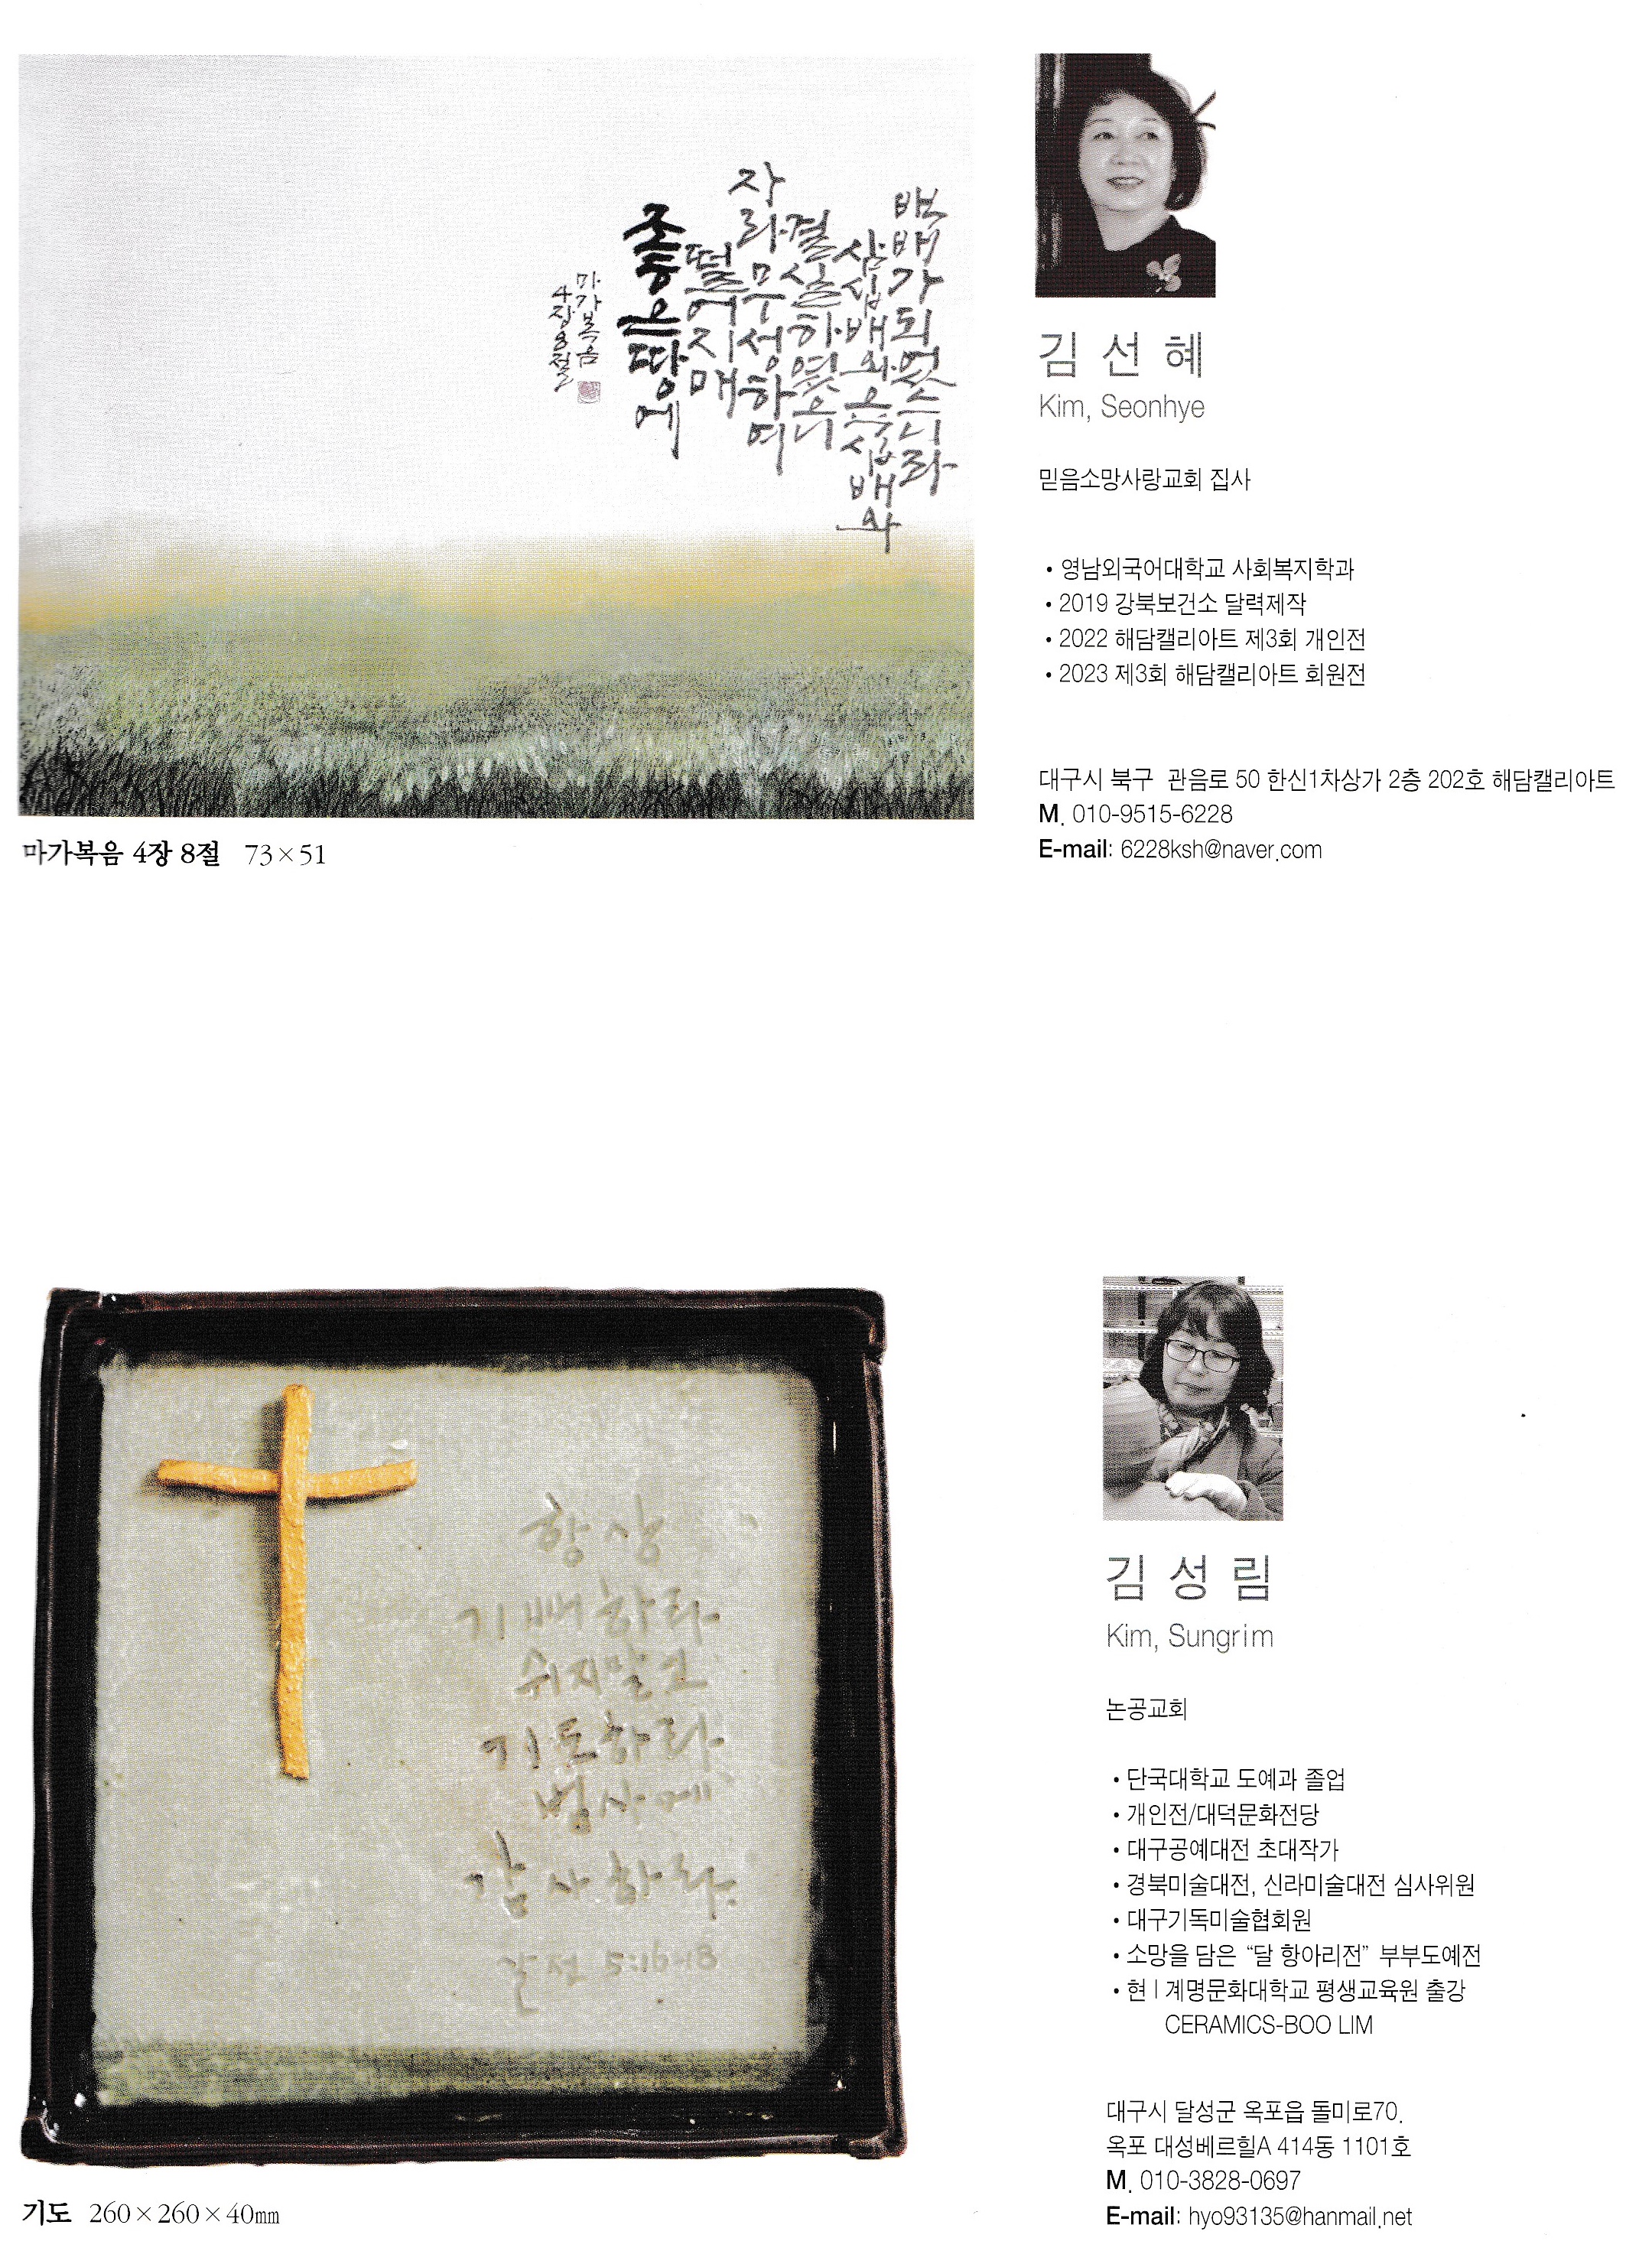 좋은땅에
떨어지매
자라 무성하여
결실하였으니
삼십배와 육십배와
백배가 되었느니라
마가복음
4장8절
마가복음 4장 8절 73×51
김 선 혜
Kim, Seonhye
믿음소망사랑교회 집사
• 영남외국어대학교 사회복지학과
• 2019 강북보건소 달력제작
• 2022 해담캘리아트 제3회 개인전
• 2023 제3회 해담캘리아트 회원전
대구시 북구 관음로 50 한신1차상가 2층 202호 해담캘리아트
M. 010-9515-6228
E-mail: 6228ksh@naver.com
항상
기뻐하라
쉬지말고
기도하라
범사에
감사하라.
살전 5:16-18
기도 260×260×40mm
김 성 림
Kim, Sungrim
논공교회
• 단국대학교 도예과 졸업
• 개인전/대덕문화전당
• 대구공예대전 초대작가
• 경북미술대전, 신라미술대전 심사위원
• 대구기독미술협회원
• 소망을 담은 “달 항아리전” 부부도예전
• 현 | 계명문화대학교 평생교육원 출강
CERAMICS-BOO LIM
대구시 달성군 옥포읍 돌미로70.
옥포 대성베르힐A 414동 1101호
M. 010-3828-0697
E-mail: hyo93135@hanmail.net